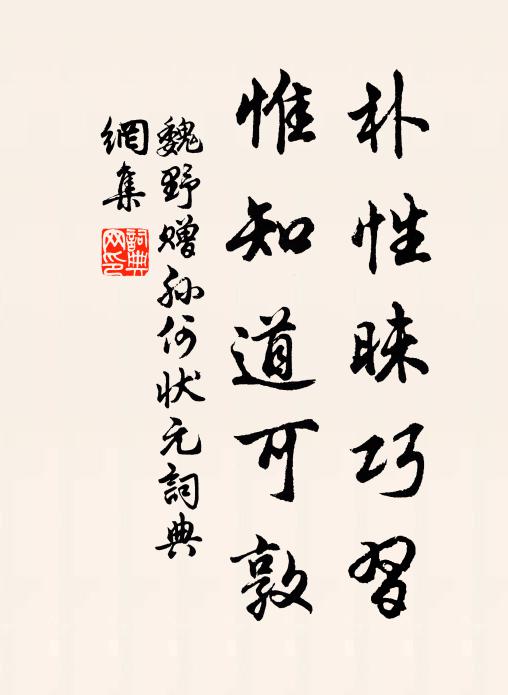 朴性昧巧習
惟知道可敦
魏野贈孫何狀元詞典
網集
詞典網印